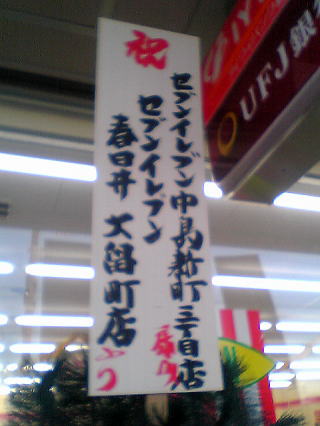 祝
セブンイレブン中島新町三丁目店
セブンイレブン
春日井 大留町店
より
iY
UFJ銀